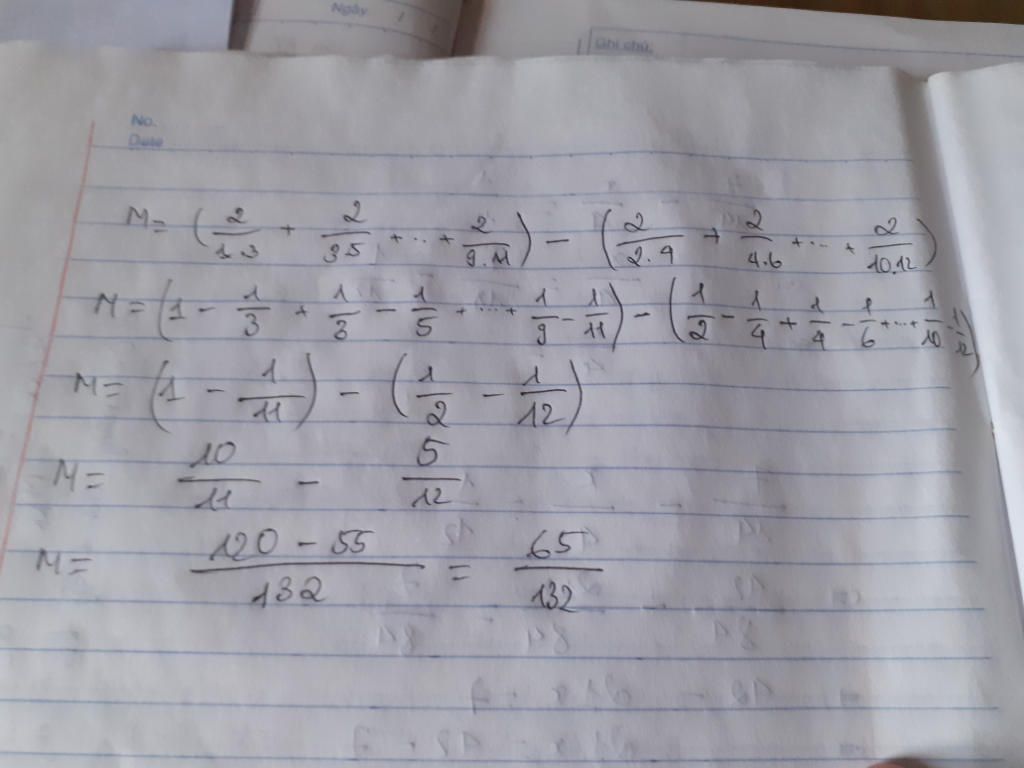 Ngày / /
Ghi chú:
No.
Date
M = (2/1.3 + 2/3.5 + ... + 2/9.11) - (2/2.4 + 2/4.6 + ... + 2/10.12)
M = (1 - 1/3 + 1/3 - 1/5 + ... + 1/9 - 1/11) - (1/2 - 1/4 + 1/4 - 1/6 + ... + 1/10 - 1/12)
M = (1 - 1/11) - (1/2 - 1/12)
M = 10/11 - 5/12
M = (120 - 55)/132 = 65/132